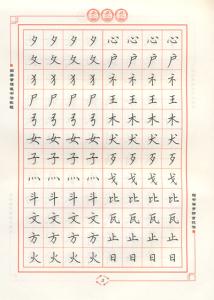 夕 夕 夕 夕 心 心 心 心
夂 夂 夂 夂 户 户 户 户
犭 犭 犭 犭 礻 礻 礻 礻
尸 尸 尸 尸 王 王 王 王
弓 弓 弓 弓 木 木 木 木
女 女 女 女 犬 犬 犬 犬
子 子 子 子 歹 歹 歹 歹
灬 灬 灬 灬 戈 戈 戈 戈
斗 斗 斗 斗 比 比 比 比
文 文 文 文 瓦 瓦 瓦 瓦
方 方 方 方 止 止 止 止
火 火 火 火 日 日 日 日